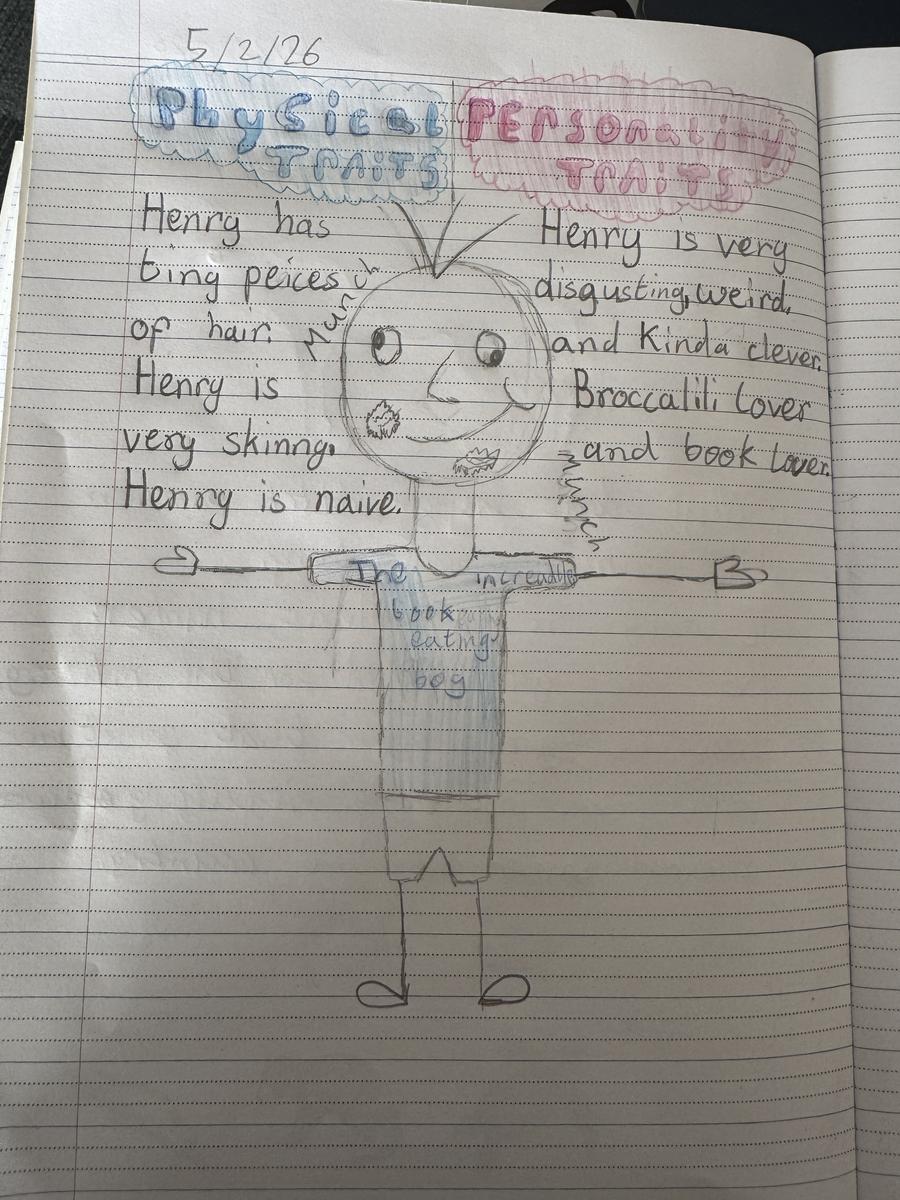 5/2/26
Physical
TRAiTS
PErsonality
TRAiTS
Henry has
ting peices
of hair.
Henry is
very skinng.
Henry is naive.
Munch
Henry is very
disgusting, weird,
and kinda clever.
Broccalili lover
and book lover.
Munch
The increadble
book
eating
boy